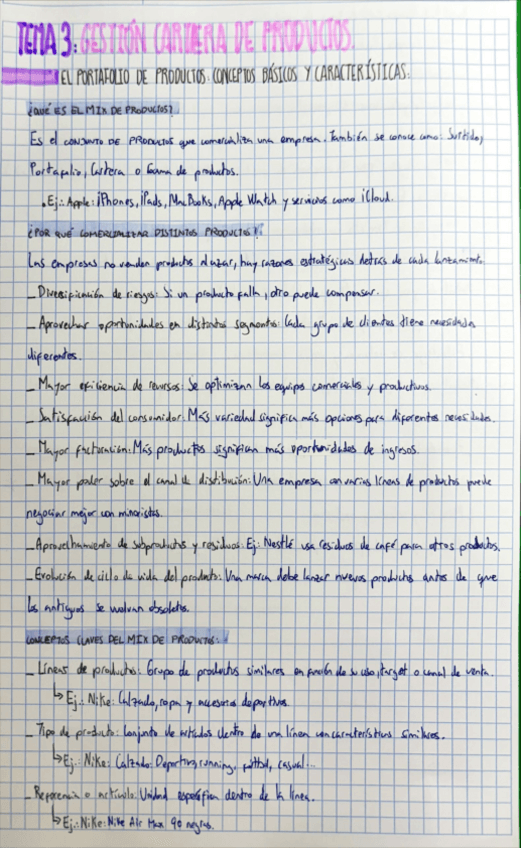 TEMA 3: GESTIÓN CARTERA DE PRODUCTOS.
EL PORTAFOLIO DE PRODUCTOS: CONCEPTOS BÁSICOS Y CARACTERÍSTICAS:
¿QUÉ ES EL MIX DE PRODUCTOS?
Es el CONJUNTO DE PRODUCTOS que comercializa una empresa. También se conoce como: Surtido,
Portafolio, Cartera o Gama de productos.
• Ej.: Apple: iPhones, iPads, MacBooks, Apple Watch y servicios como iCloud.
¿POR QUÉ COMERCIALIZAR DISTINTOS PRODUCTOS?:
Las empresas no venden productos al azar, hay razones estratégicas detrás de cada lanzamiento.
_ Diversificación de riesgos: Si un producto falla, otro puede compensar.
_ Aprovechar oportunidades en distintos segmentos: Cada grupo de clientes tiene necesidades
diferentes.
_ Mayor eficiencia de recursos: Se optimizan los equipos comerciales y productivos.
_ Satisfacción del consumidor: Más variedad significa más opciones para diferentes necesidades.
_ Mayor facturación: Más productos significan más oportunidades de ingresos.
_ Mayor poder sobre el canal de distribución: Una empresa con varias líneas de productos puede
negociar mejor con minoristas.
_ Aprovechamiento de subproductos y residuos: Ej: Nestlé usa residuos de café para otros productos.
_ Evolución de ciclo de vida del producto: Una marca debe lanzar nuevos productos antes de que
los antiguos se vuelvan obsoletos.
CONCEPTOS CLAVES DEL MIX DE PRODUCTOS:
_ Líneas de productos: Grupo de productos similares en función de su uso, target o canal de venta.
↳ Ej.: Nike: Calzado, ropa y accesorios deportivos.
_ Tipo de producto: Conjunto de artículos dentro de una línea con características similares.
↳ Ej.: Nike: Calzado: Deportivo, running, fútbol, casual...
_ Referencia o artículo: Unidad específica dentro de la línea.
↳ Ej.: Nike: Nike Air Max 90 negras.